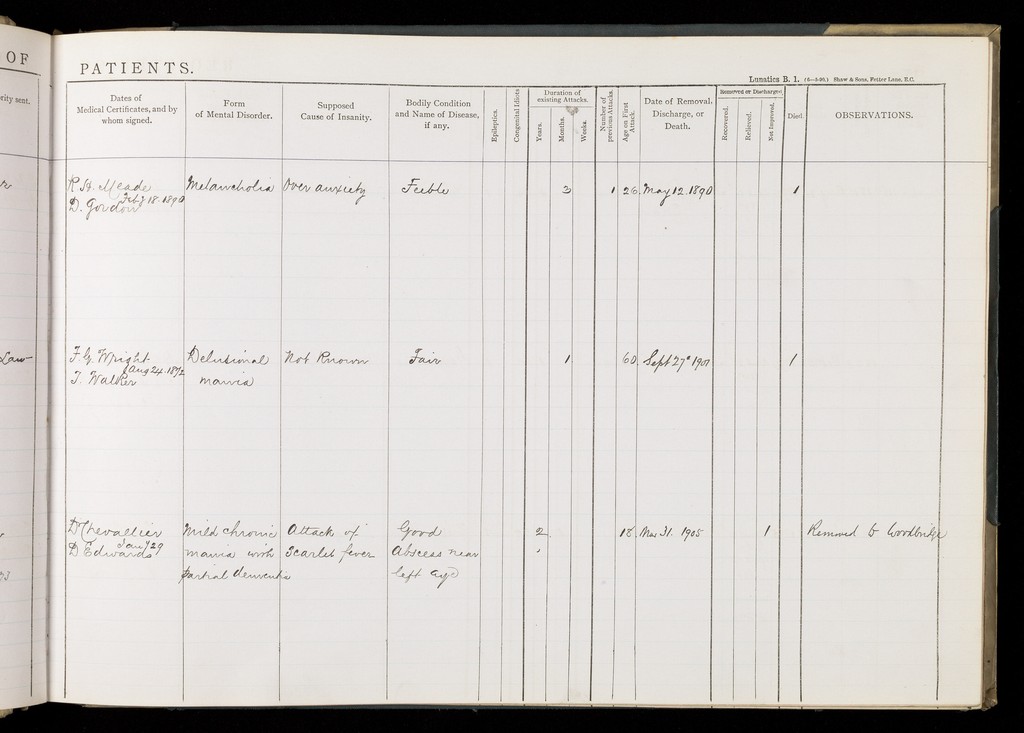 OF
PATIENTS.
Lunatics B. 1. (6—5-90.) Shaw & Sons, Fetter Lane, E.C.
ority sent.
Dates of
Medical Certificates, and by
whom signed.
Form
of Mental Disorder.
Supposed
Cause of Insanity.
Bodily Condition
and Name of Disease,
if any.
Epileptics.
Congenital Idiots
Duration of
existing Attacks.
Years.
Months.
Weeks.
Number of
previous Attacks.
Age on First
Attack.
Date of Removal,
Discharge, or
Death.
Removed or Discharged
Recovered.
Relieved.
Not Improved.
Died
OBSERVATIONS.
R. H. Meade Melancholia Over anxiety Feeble 3 1 26. May 12. 1890 1
Feby 18. 1890
D. Gordon
Law
F. G. Wright Delusional Not Known Fair 1 60. Sept 27 1901 1
Aug 24. 1892
T. Walker mania
D Chevallier Mild chronic Attack of Good 2 18. Mar 31. 1905 1 Removed to Woodbridge
Jany 29
D Edwards mania with Scarlet fever Abscess near
partial dementia left